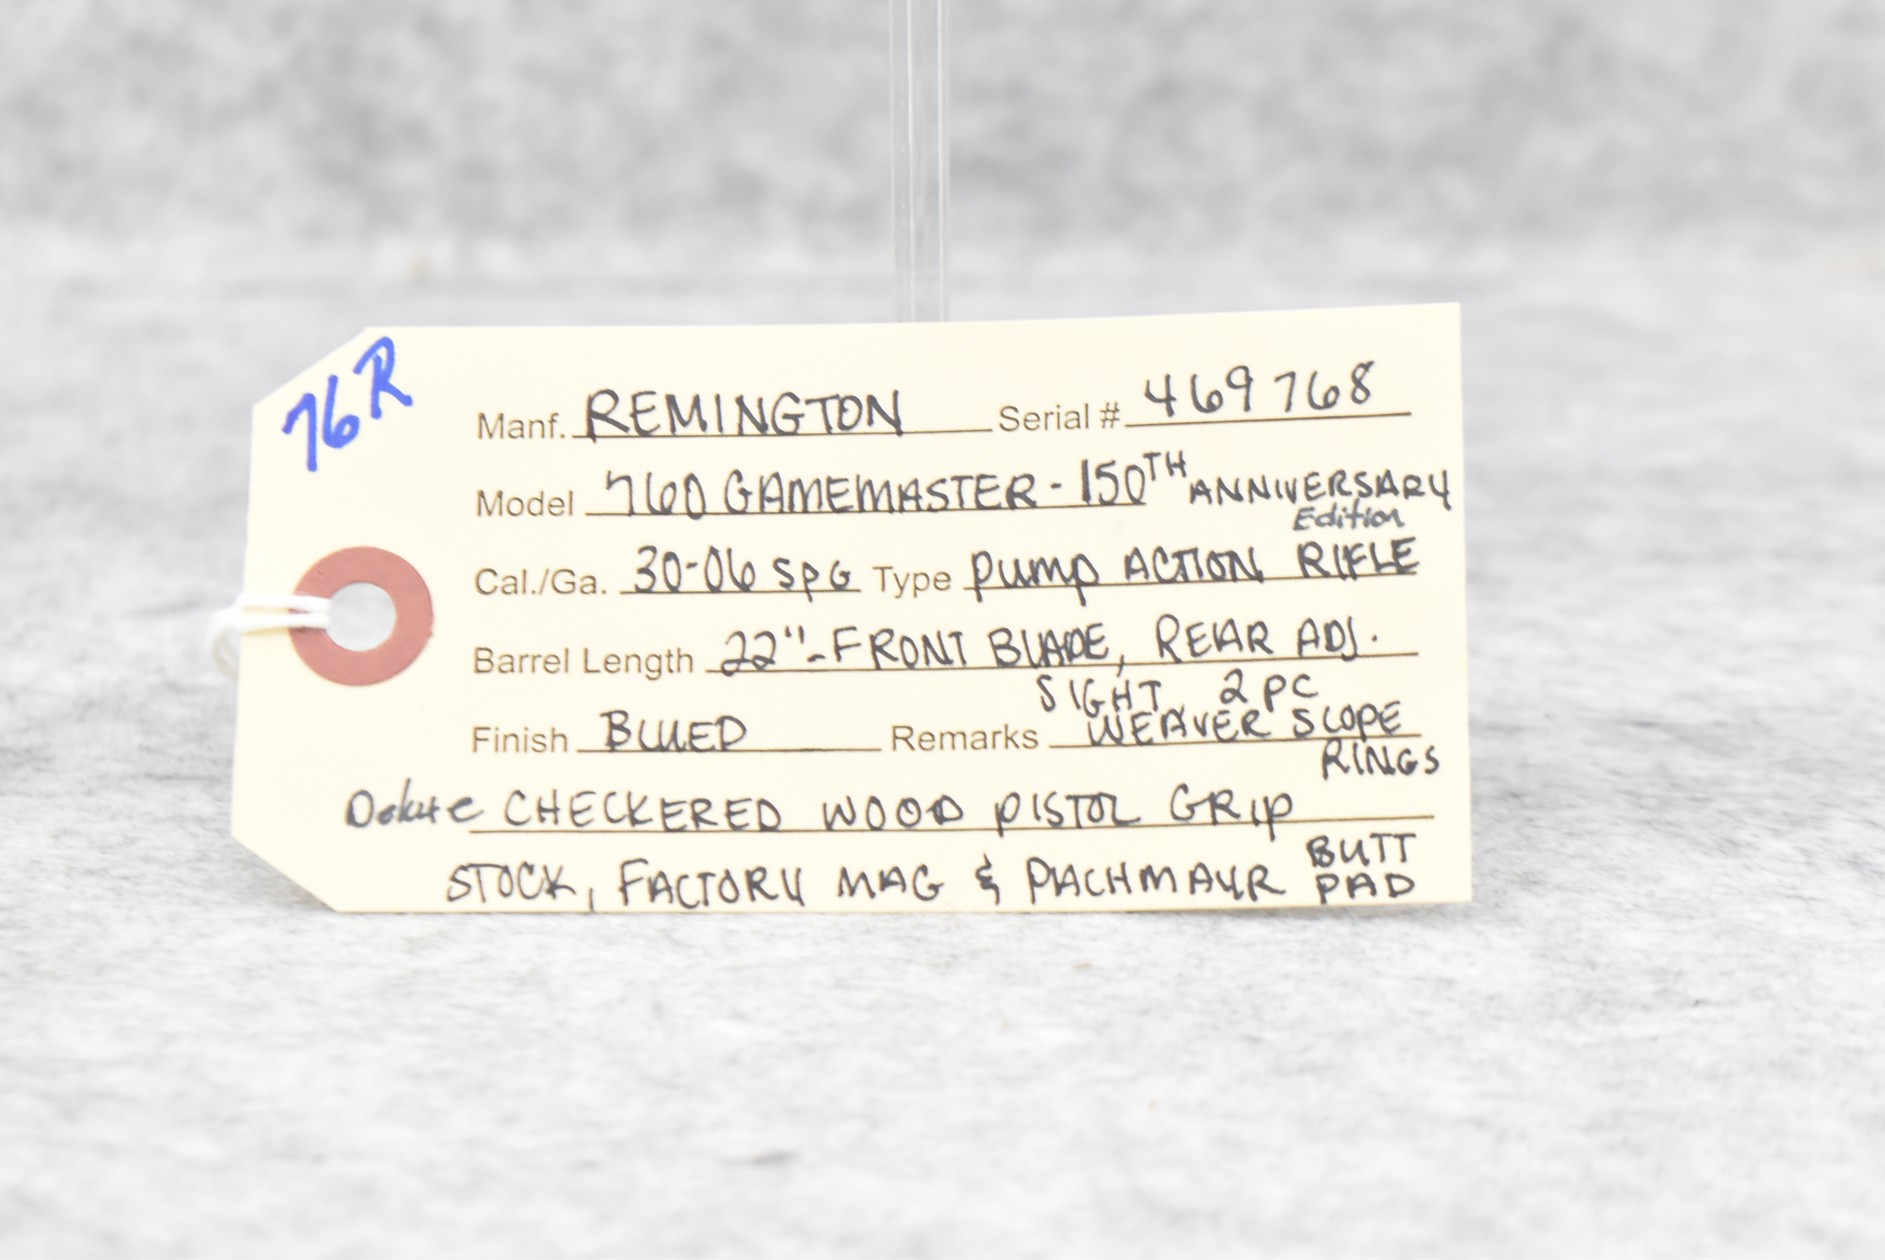 76R
Manf. REMINGTON Serial # 469768
Model 760 GAMEMASTER - 150TH ANNIVERSARY
Edition
Cal./Ga. 30-06 SPG Type Pump ACTION RIFLE
Barrel Length 22" - FRONT BLADE, REAR ADJ.
SIGHT, 2 PC
Finish BLUED Remarks WEAVER SCOPE
RINGS
Deluxe CHECKERED WOOD PISTOL GRIP
STOCK, FACTORY MAG & PACHMAYR BUTT
PAD